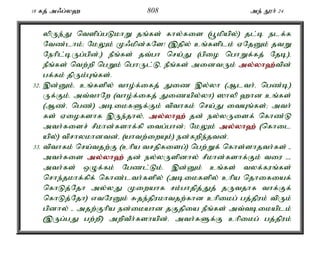 18 கத் அஃப்லஹ 808 அந் நூர் 24
லிருந்து வெளிப்படுமாறு தங்கள் கால்களை (பூமியில்) தட்டி நடக்க
வேண்டாம்; மேலும் முஃமின்களே! (இதில் உங்களிடம் ஏதேனும் தவறு
நேரிட்டிருப்பின்,) நீங்கள் தவ்பா செய்து (பிழை பொறுக்கத் தேடி),
நீங்கள் வெற்றி பெறும் பொருட்டு, நீங்கள் அனைவரும் அல்லாஹ்வின்
பக்கம் திரும்புங்கள்.
32. இன்னும், உங்களில் வாழ்க்கைத் துணை இல்லா (ஆடவர், பெண்டி)
ருக்கும், அவ்வாறே (வாழ்க்கைத் துணையில்லா) ஸாலி ஹான உங்கள்
(ஆண், பெண்) அடிமைகளுக்கும் விவாகம் செய்து வையுங்கள்; அவர்
கள் ஏழைகளாக இருந்தால், அல்லாஹ் தன் நல்லருளைக் கொண்டு
அவர்களைச் சீமான்களாக்கி வைப்பான்; மேலும் அல்லாஹ் (கொடை
யில்) விசாலமானவன், (யாவற்றையும்) நன்கறிந்தவன்.
33. விவாகம் செய்வதற்கு (உரிய வசதிகளைப்) பெற்றுக் கொள்ளாதவர்கள் -
அவர்களை அல்லாஹ் தன் நல்லருளினால் சீமான்களாக்கும் வரை ...
அவர்கள் ஒழுக்கம் பேணட்டும். இன்னும் உங்கள் வலக்கரங்கள்
சொந்தமாக்கிக் கொண்டவர்களில் (அடிமைகளில் உரிய தொகையைக்
கொடுத்தோ அல்லது முறையாக சம்பாதித்துத் தருவதாக வாக்குக்
கொடுத்தோ) எவரேனும் சுதந்திரமாவதற்கான உரிமைப் பத்திரம் விரும்
பினால் - அதற்குரிய நன்மையான தகுதியை நீங்கள் அவ்வடிமையிடம்
(இருப்பது பற்றி) அறிவீர்களாயின், அவர்களுக்கு உரிமைப் பத்திரம்